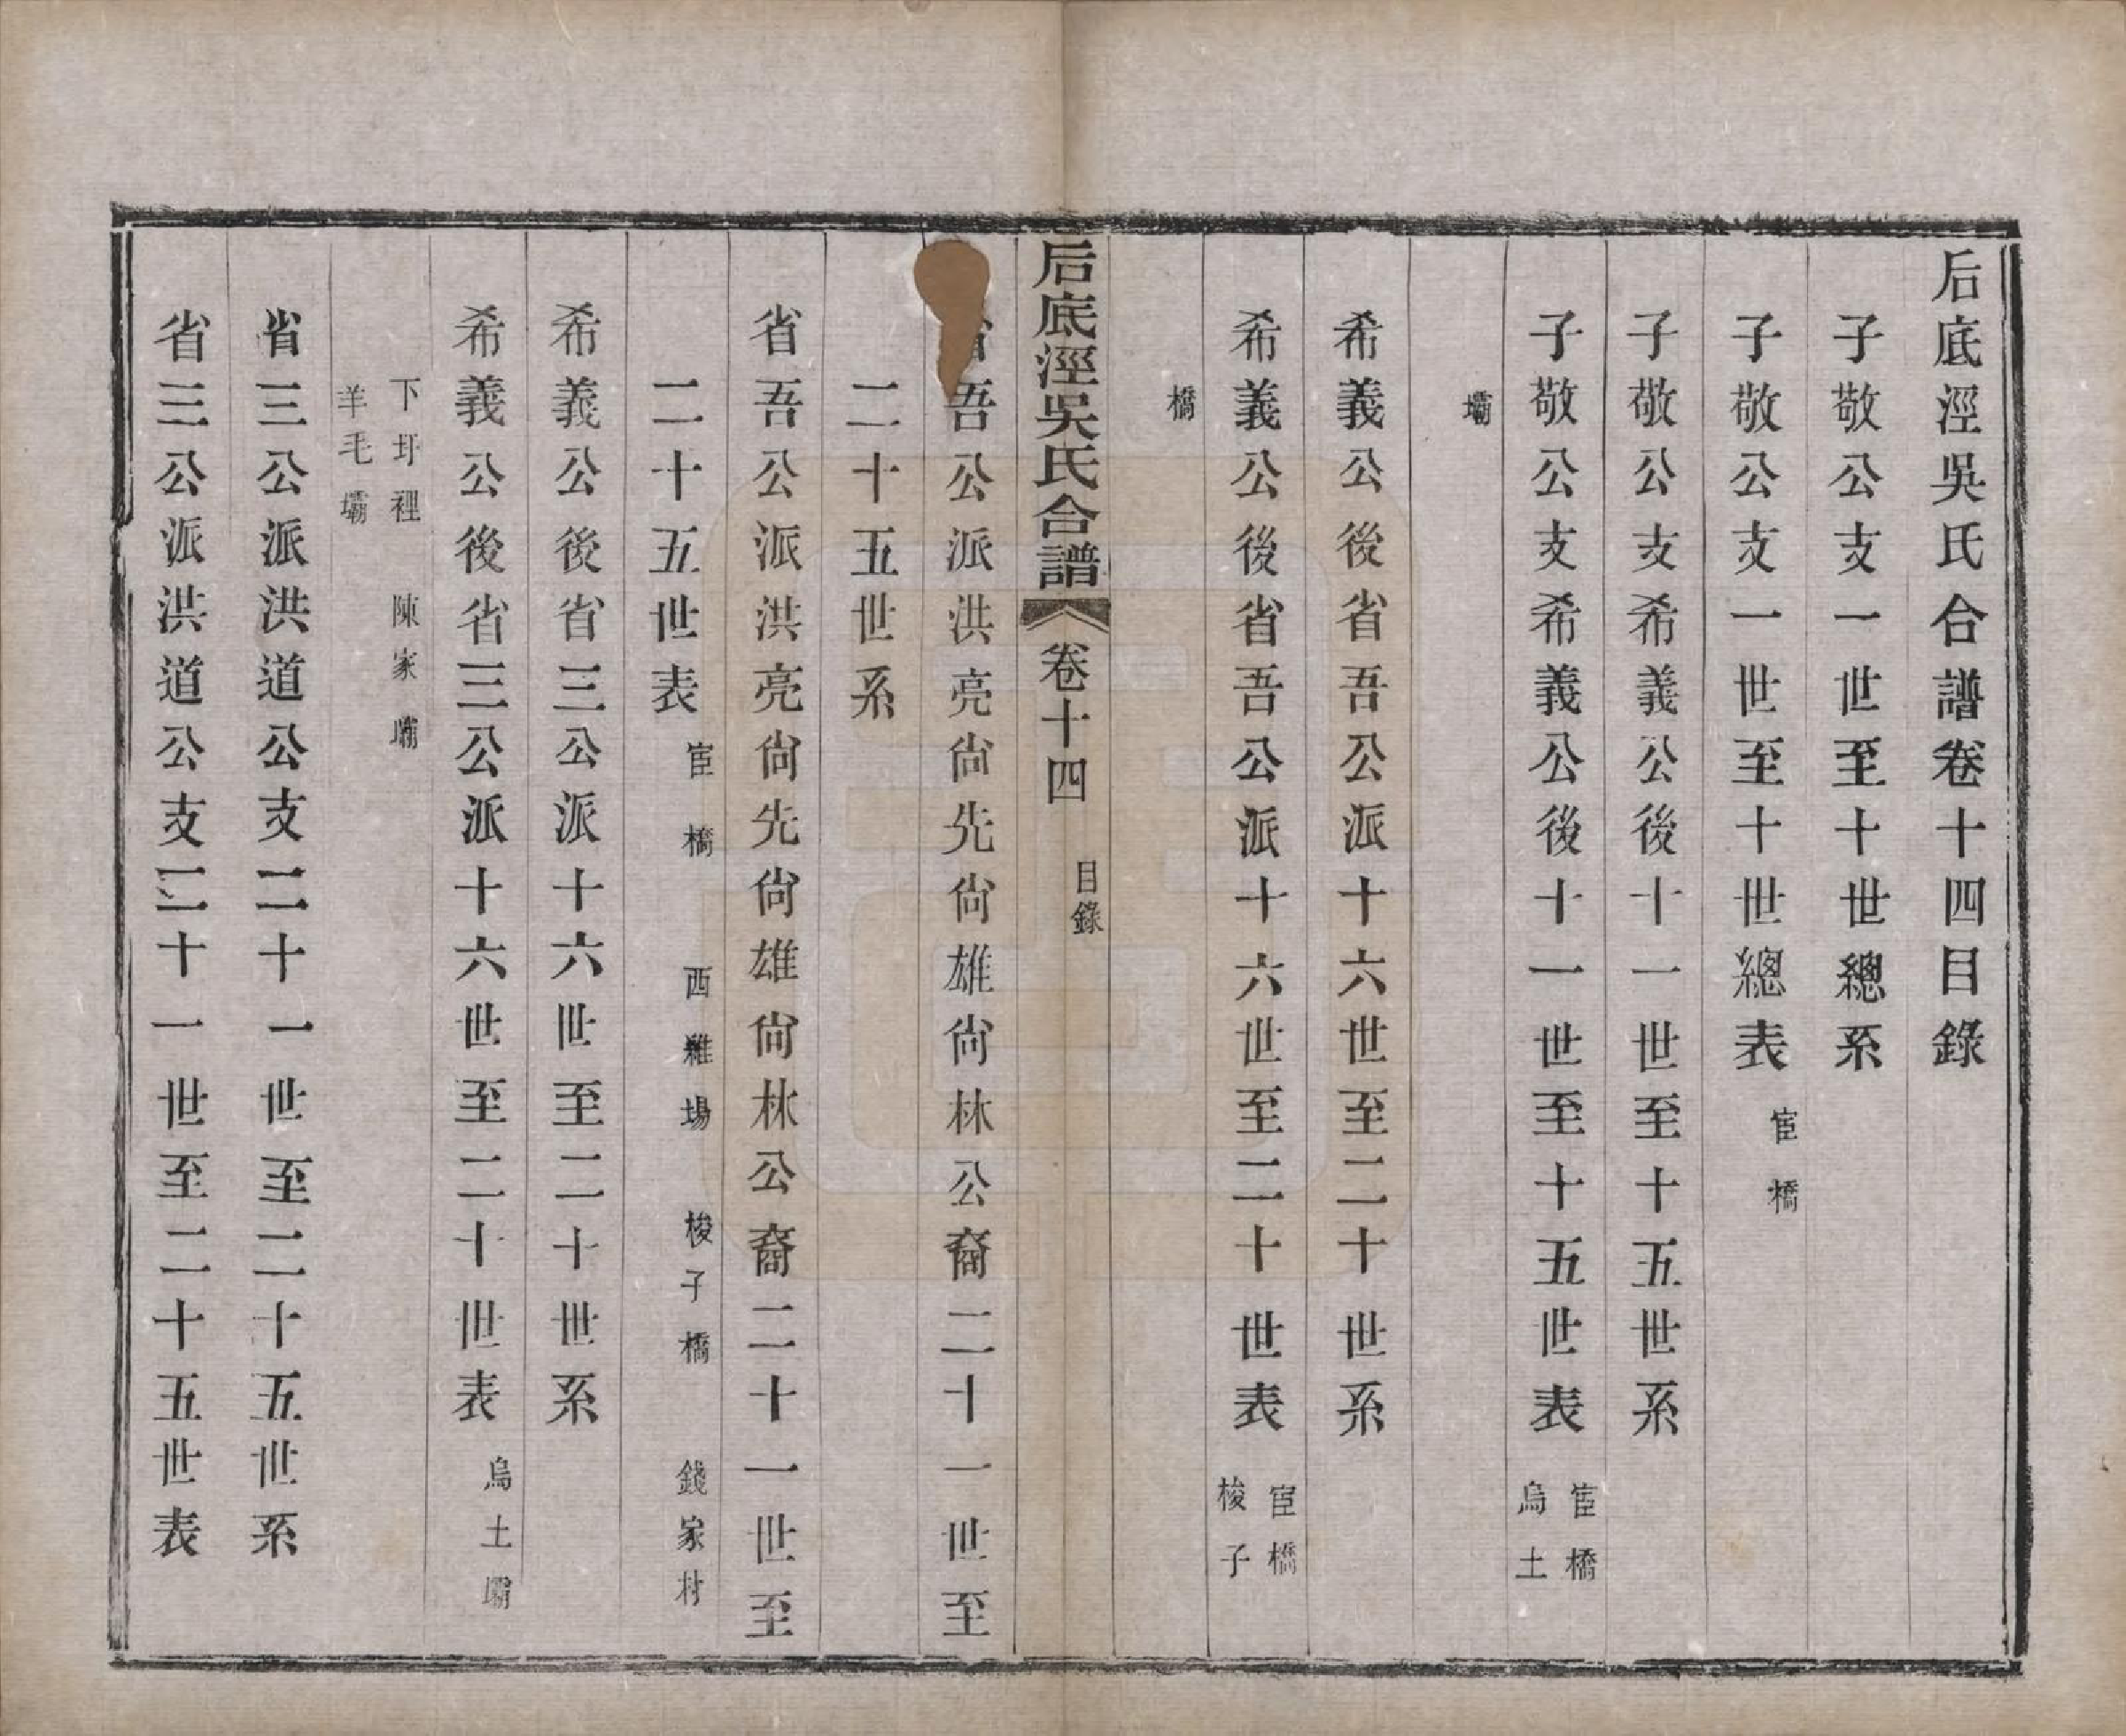 后底涇吳氏合譜卷十四目錄
子敬公支一世至十世總系
子敬公支一世至十世總表 宦橋
子敬公支希義公後十一世至十五世系
子敬公支希義公後十一世至十五世表 宦橋 烏土
壩
希義公後省吾公派十六世至二十世系
希義公後省吾公派十六世至二十世表 宦橋 梭子
橋
后底涇吳氏合譜 卷十四 目錄
省吾公派洪亮尙先尙雄尙林公裔二十一世至
二十五世系
省吾公派洪亮尙先尙雄尙林公裔二十一世至
二十五世表 宦橋 西雞場 梭子橋 錢家村
希義公後省三公派十六世至二十世系
希義公後省三公派十六世至二十世表 烏土壩
下圩裡 陳家壩
羊毛壩
省三公派洪道公支二十一世至二十五世系
省三公派洪道公支二十一世至二十五世表